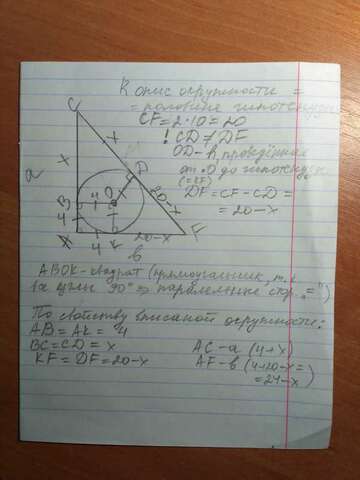 R опис окружности =
= половине гипотенузы
CF = 2·10 = 20
! CD ≠ DF
OD - R, проведённая
от O до гипотенузы
(CF)
DF = CF - CD =
= 20-x
C
x
x
a
D
B
4
4
O
20-x
4
K
20-x
F
в
ABOK - квадрат (прямоугольник, т.к
углы 90° => параллельные стор. =)
По свойству вписаной окружности:
AB = AK = 4
BC = CD = x
KF = DF = 20-x
AC - a (4+x)
AF - в (4+20-x =
= 24-x)